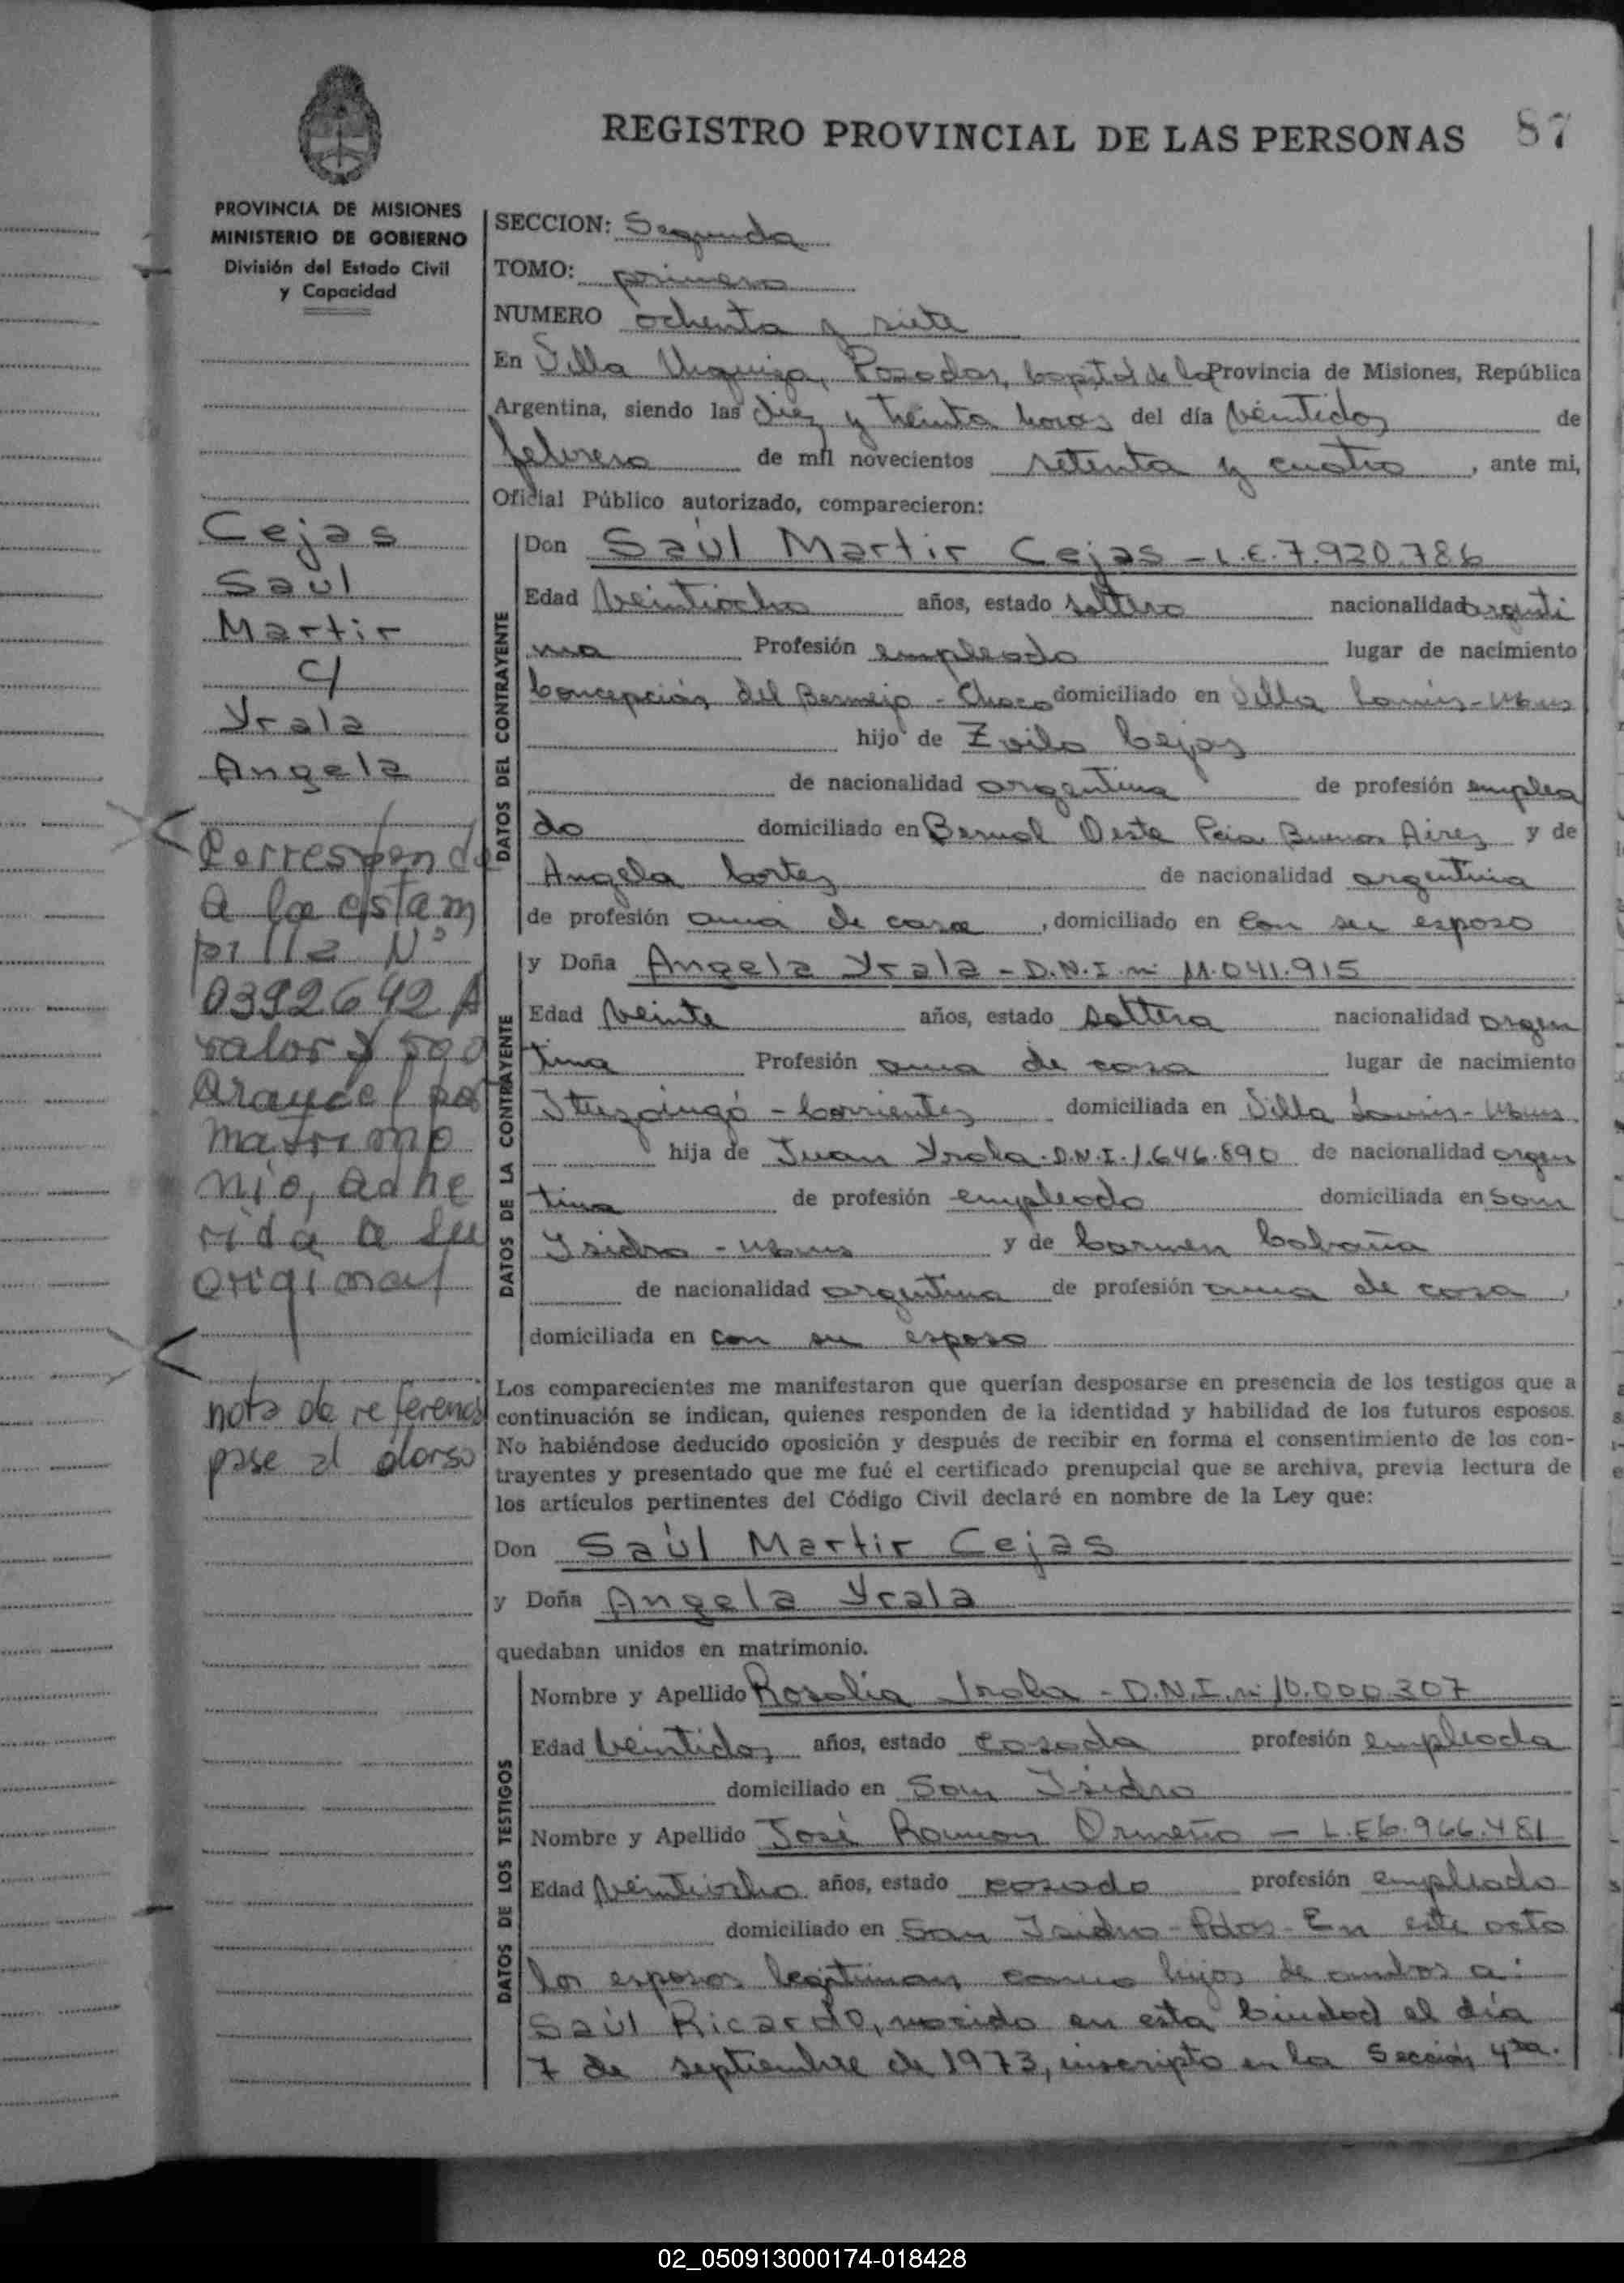 REGISTRO PROVINCIAL DE LAS PERSONAS
87
PROVINCIA DE MISIONES
MINISTERIO DE GOBIERNO
División del Estado Civil
y Capacidad
Cejas
Saul
Martir
c/
Yrala
Angela
Corresponde
a la estam
pilla N°
0392642 A
valor $ 500
Arancel por
matrimo
nio, adhe
rida a su
original
nota de referencia
pase al dorso
SECCION: Segunda
TOMO: primero
NUMERO ochenta y siete
En Villa Urquiza, Posadas, Capital de la Provincia de Misiones, República
Argentina, siendo las diez y treinta horas del día veintidos de
febrero de mil novecientos setenta y cuatro, ante mi,
Oficial Público autorizado, comparecieron:
DATOS DEL CONTRAYENTE
Don Saúl Martir Cejas - L.E. 7.920.786
Edad veintiocho años, estado soltero nacionalidad argenti
na Profesión empleado lugar de nacimiento
Concepción del Bermejo - Chaco domiciliado en Villa Lanús -
hijo de Zoilo Cejas
de nacionalidad argentina de profesión emplea
do domiciliado en Bernal Oeste Pcia. Buenos Aires y de
Angela Cortez de nacionalidad argentina
de profesión ama de casa, domiciliado en con su esposo
DATOS DE LA CONTRAYENTE
y Doña Angela Yrala - D.N.I. n° 11.041.915
Edad veinte años, estado soltera nacionalidad argen
tina Profesión ama de casa lugar de nacimiento
Ituzaingó - Corrientes domiciliada en Villa Lanús -
hija de Juan Yrala - D.N.I. 1.646.890 de nacionalidad argen
tina de profesión empleado domiciliada en San
Isidro - y de Carmen Cabaña
de nacionalidad argentina de profesión ama de casa,
domiciliada en con su esposo
Los comparecientes me manifestaron que querían desposarse en presencia de los testigos que a
continuación se indican, quienes responden de la identidad y habilidad de los futuros esposos.
No habiéndose deducido oposición y después de recibir en forma el consentimiento de los con-
trayentes y presentado que me fué el certificado prenupcial que se archiva, previa lectura de
los artículos pertinentes del Código Civil declaré en nombre de la Ley que:
Don Saúl Martir Cejas
y Doña Angela Yrala
quedaban unidos en matrimonio.
DATOS DE LOS TESTIGOS
Nombre y Apellido Rosalia Irala - D.N.I. n° 10.000.307
Edad veintidos años, estado casada profesión empleada
domiciliado en San Isidro
Nombre y Apellido José Ramon Ormeño - L.E 6.966.481
Edad veintiocho años, estado casado profesión empleado
domiciliado en San Isidro - Pdas - En este acto
los esposos legitiman como hijos de ambos a:
Saúl Ricardo, nacido en esta Ciudad el día
7 de septiembre de 1973, inscripto en la Sección 4ta.
02_050913000174-018428